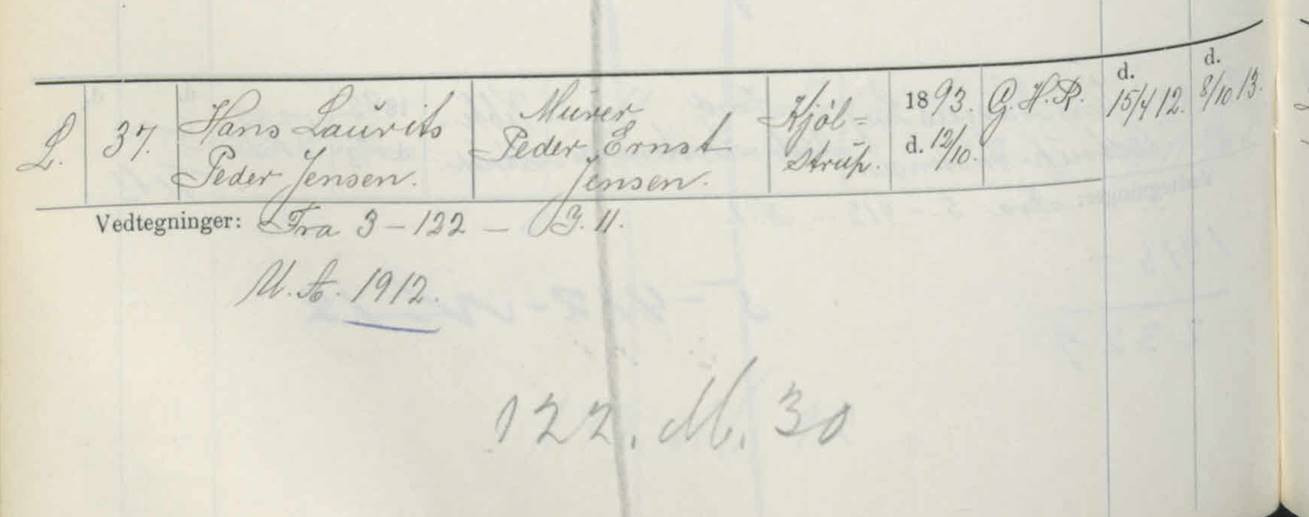 L. 37. Hans Laurits Peder Jensen. Murer Peder Ernst Jensen. Kjøl= strup. 1893. d. 12/10. G. H. R. d. 15/4 12. d. 8/10 13.
Vedtegninger: Fra 3-122 - J. 11.
U. St. 1912.
122. M. 30